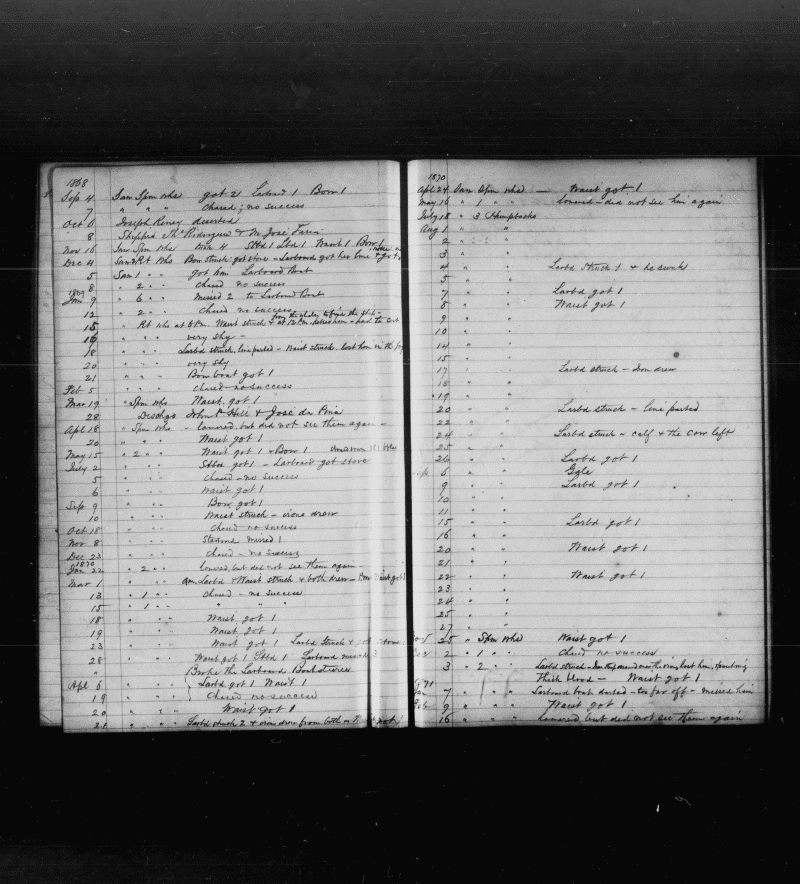 1868
Sep 4 Saw Spm whs got 2 Larboard 1 Bow 1
7 " " " chased; no success
Oct 6 Joseph deserted
8 Shipped & José
Nov 16 Saw Spm whs took 4 Stbd 1 Lbd 1 Waist 1 Bow 1
Dec 4 Saw Rt Whs Bow Struck; got stove - Larboard got her line & got
5 Saw 1 " " got him Larboard Boat
8 " 2 " " chased no success
1869
Jan 9 " 6 " " missed 2 to Larboard Boat
12 " 2 " " chased no success
15 " Rt whs at Waist struck & had to cut
16 " " " very shy -
18 " " " Larbd struck, line parted - Waist struck, lost him in the fog
20 " " " very shy
21 " " " Bow boat got 1
Feb 5 " " " chased - no success
Mar 19 " Spm whs Waist got 1
28 Dischgd John & José
Apl 18 " Spm whs - lowered, but did not see them again -
20 " " " Waist got 1
May 15 " 2 " " Waist got 1 & Bow 1
July 2 " " " Stbd got 1 - Larboard got stove
5 " " " chased - no success
6 " " " Waist got 1
Sep 9 " " " Bow got 1
10 " " " Waist struck - irons drew
Oct 18 " " " Chased no success
Nov 8 " " " Starboard missed 1
Dec 23 " " " Chased - no success
1870
Jan 22 " 2 " " lowered, but did not see them again
Mar 1 " " " Larbd & Waist struck & both drew - Waist got 1
13 " 1 " " chased - no success
15 " 1 " " " " "
18 " " " Waist got 1
19 " " " Waist got 1
23 " " " Waist got 1 Larbd Struck &
28 " " " Waist got 1 Stbd 1 Larboard missed
" Broke the Larboard Boat
Apl 6 " " " Larbd got 1 Waist 1
19 " " " Chased no success
20 " " " Waist got 1
21 " " " Larbd struck 2 & irons drew from both -
1870
Apl 24 Saw Spm whs - Waist got 1
May 16 " 1 " " lowered - did not see him again
July 18 " 3 Humpbacks
Aug 1 " " "
2 " " "
3 " " "
4 " " " Larbd Struck 1 & he sunk
5 " " "
7 " " " Larbd got 1
8 " " " Waist got 1
9 " " "
10 " " "
14 " " "
15 " " "
17 " " " Larbd struck - iron drew
18 " " "
19 " " "
20 " " " Larbd struck - line parted
22 " " "
24 " " " Larbd struck - calf & the cow left
25 " " "
26 " " " Larbd got 1
6 " " Gale
9 " " " Larbd got 1
10 " " "
11 " " "
15 " " " Larbd got 1
16 " " "
20 " " " Waist got 1
21 " " "
22 " " " Waist got 1
23 " " "
24 " " "
25 " " "
27 " " "
25 " Spm whs Waist got 1
2 " 1 " " Chased no success
3 " 2 " " Larbd struck - lost him, spouting
thick blood - Waist got 1
7 " " " Larboard boat darted - too far off - missed him
9 " " " Waist got 1
16 " " " lowered but did not see them again